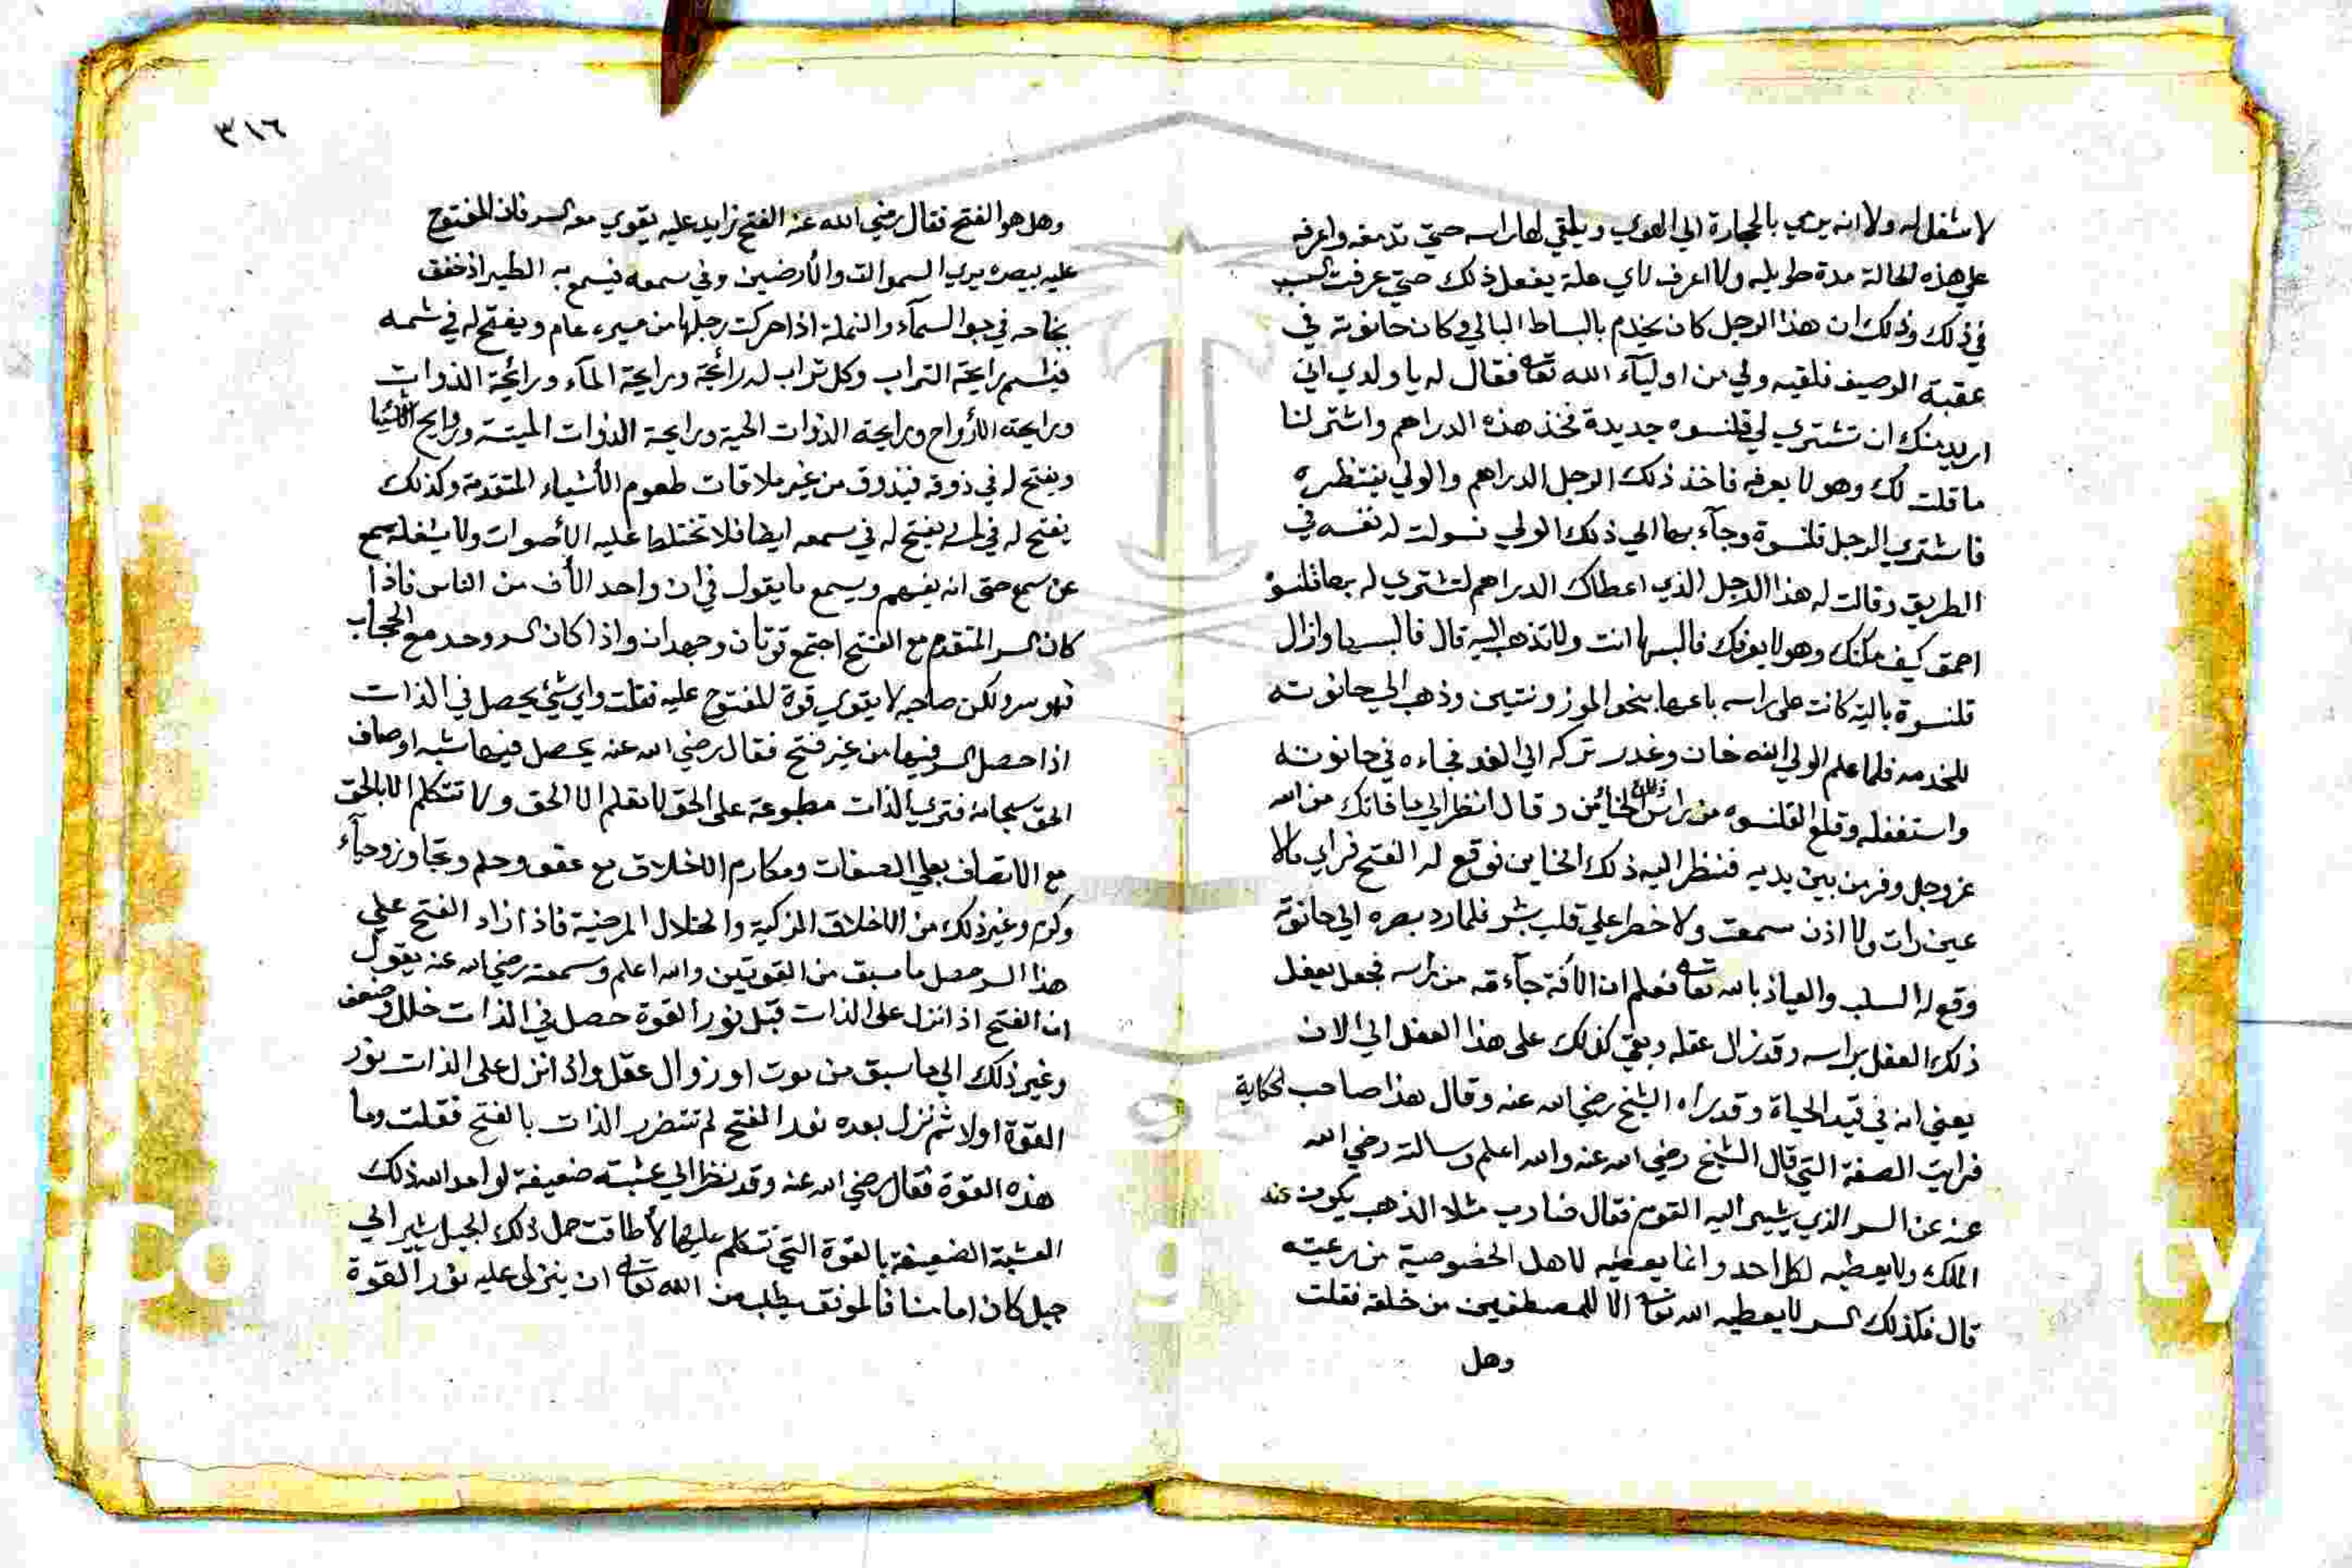 لا شغل له ولا انه يرمي بالحجارة الي الهوي ويلقي لها راسه حتي تدمغه واعرفه
علي هذه الحالة مدة طويله ولا اعرف لاي علة يفعل ذلك حتي عرفت السبب
في ذلك وذلك ان هذا الرجل كان يخدم بالبساط البالي وكان حانوته في
عقبة الرصيف فلقيه ولي من اوليآء الله تعا فقال له يا ولدي اني
اريد منك ان تشتري لي قلنسوه جديدة فخذ هذه الدراهم واشتر لنا
ما قلت لك وهو لا يعرفه فاخذ ذلك الرجل الدراهم والولي ينتظره
فاشتري الرجل قلنسوة وجآء بها الي ذلك الولي فسولت له نفسه في
الطريق وقالت له هذا الرجل الذي اعطاك الدراهم لتشتري له بها قلنسوة
احمق كيف مكنك وهو لا يعرفك فالبسها انت ولا تذهب اليه قال فالبسها وازال
قلنسوة بالية كانت علي راسه باعها بنحو الموزونتين وذهب الي حانوته
للخدمه فلما علم الولي انه خان وغدر تركه الي الغد فجاءه في حانوته
واستغفله وقلع القلنسوه من راس ذلك الخائن وقال انظر الي ما فاتك من الله
عز وجل وفر من بين يديه فنظر اليه ذلك الخاين فوقع له الفتح فراي مالا
عين رات ولا اذن سمعت ولا خطر علي قلب بشر فلما رد بصره الي حانوته
وقع له السلب والعياذ بالله تعا فعلم ان الآفة جآءته من راسه فجعل يفعل
ذلك الفعل براسه وقد زال عقله وبقي كذلك علي هذا الفعل الي الان
يعني انه في قيد الحياة وقد راه الشيخ رضي الله عنه وقال هذا صاحب الحكاية
فرايت الصفة التي قال الشيخ رضي الله عنه والله اعلم وسالته رضي الله
عنه عن السر الذي يشير اليه القوم فقال ضارب مثلا الذهب يكون عند
الملك ولا يعطيه لكل احد وانما يعطيه لاهل الخصوصية من رعيته
قال فكذلك السر لا يعطيه الله تعا الا للمصطفين من خلقه فقلت
وهل
٣١٦
وهل هو الفتح فقال رضي الله عنه الفتح زايد عليه يقوي معه السر فان المفتوح
عليه ببصره يري السموات والأرضين وفي سمعه فيسمع به الطير اذ خفق
بجناحه في جو السمآء والنملة اذا حركت رجلها من مسيرة عام ويفتح له في شمه
فيشم رايحة التراب وكل تراب له رائحة ورايحة المآء ورائحة الذوات
ورايحة الأرواح ورايحة الذوات الحية ورايحة الذوات الميتة وروايح الأشيا
ويفتح له في ذوقه فيذوق من غير ملاقات طعوم الأشياء المتقدمة وكذلك
يفتح له في لمسه ويفتح له في سمعه ايضا فلا تختلط عليه الأصوات ولا يشغله سمع
عن سمع حتى انه يفهم ويسمع ما يقول في ان واحد الأف من الناس فاذا
كان السر المتقدم مع الفتح اجتمع قوتان وجهدان واذا كان السر وحد مع الحجاب
فهو سر ولكن صاحبه لا يقوي قوة للمفتوح عليه فقلت واي شيئ يحصل في الذات
اذا حصل السر فيها من غير فتح فقال رضي الله عنه يحصل فيها شبه اوصاف
الحق سبحانه فتري الذات مطبوعة على الحق لا تعلم الا الحق ولا تتكلم الا بالحق
مع الاتصاف بعلي الصفات ومكارم الاخلاق مع عفو وحلم وتجاوز وحيآء
وكرم وغير ذلك من الاخلاق الزكية والخلال المرضية فاذا زاد الفتح علي
هذا السر حصل ما سبق من القوتين والله اعلم وسمعته رضي الله عنه يقول
ان الفتح اذ انزل على الذات قبل نور القوة حصل في الذات خلل وضعف
وغير ذلك الي ما سبق من موت او زوال عقل واذ انزل على الذات نور
القوة اولا ثم نزل بعده نور الفتح لم تتضرر الذات بالفتح فقلت وما
هذه القوة فقال رضي الله عنه وقد نظر الي عشبة ضعيفة لو امد الله ذلك
العشبة الضعيفة بالقوة التي تتكلم عليها لأطاقت حمل ذلك الجبل يشير الي
جبل كان امامنا فالموفق يطلب من الله تعا ان ينزل عليه نور القوة